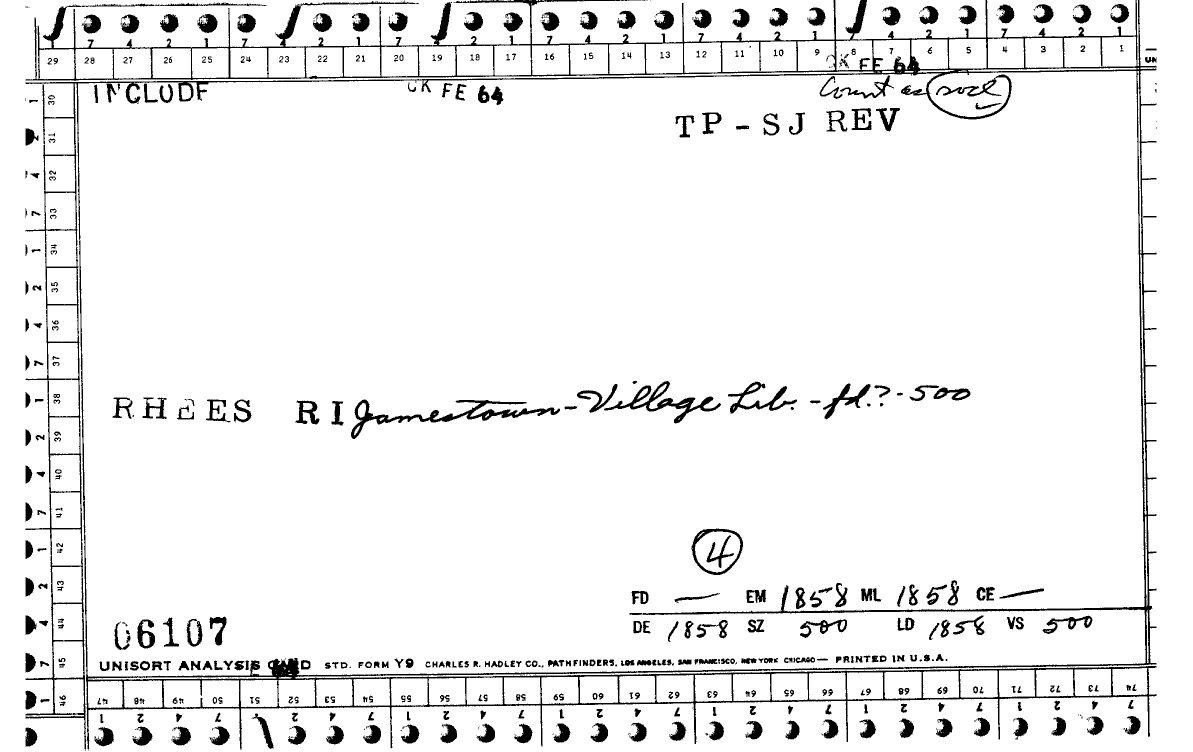 7 4 2 1 7 4 2 1 7 4 2 1 7 4 2 1 7 4 2 1 7 4 2 1
29 28 27 26 25 24 23 22 21 20 19 18 17 16 15 14 13 12 11 10 9 8 7 6 5 4 3 2 1
INCLUDE
CK FE 64
CK FE 64
Count as socl
TP-SJ REV
1 30
2 31
4 32
7 33
1 34
2 35
4 36
7 37
1 38
2 39
4 40
7 41
1 42
2 43
4 44
7 45
1 46
RHEES RI Jamestown - Village Lib. - fd.? - 500
4
FD — EM 1858 ML 1858 CE —
DE 1858 SZ 500 LD 1858 VS 500
06107
UNISORT ANALYSIS CARD STD. FORM Y9 CHARLES R. HADLEY CO., PATHFINDERS, LOS ANGELES, SAN FRANCISCO, NEW YORK CHICAGO — PRINTED IN U.S.A.
47 48 49 50 51 52 53 54 55 56 57 58 59 60 61 62 63 64 65 66 67 68 69 70 71 72 73 74
1 2 4 7 2 4 7 1 2 4 7 1 2 4 7 1 2 4 7 1 2 4 7 1 2 4 7